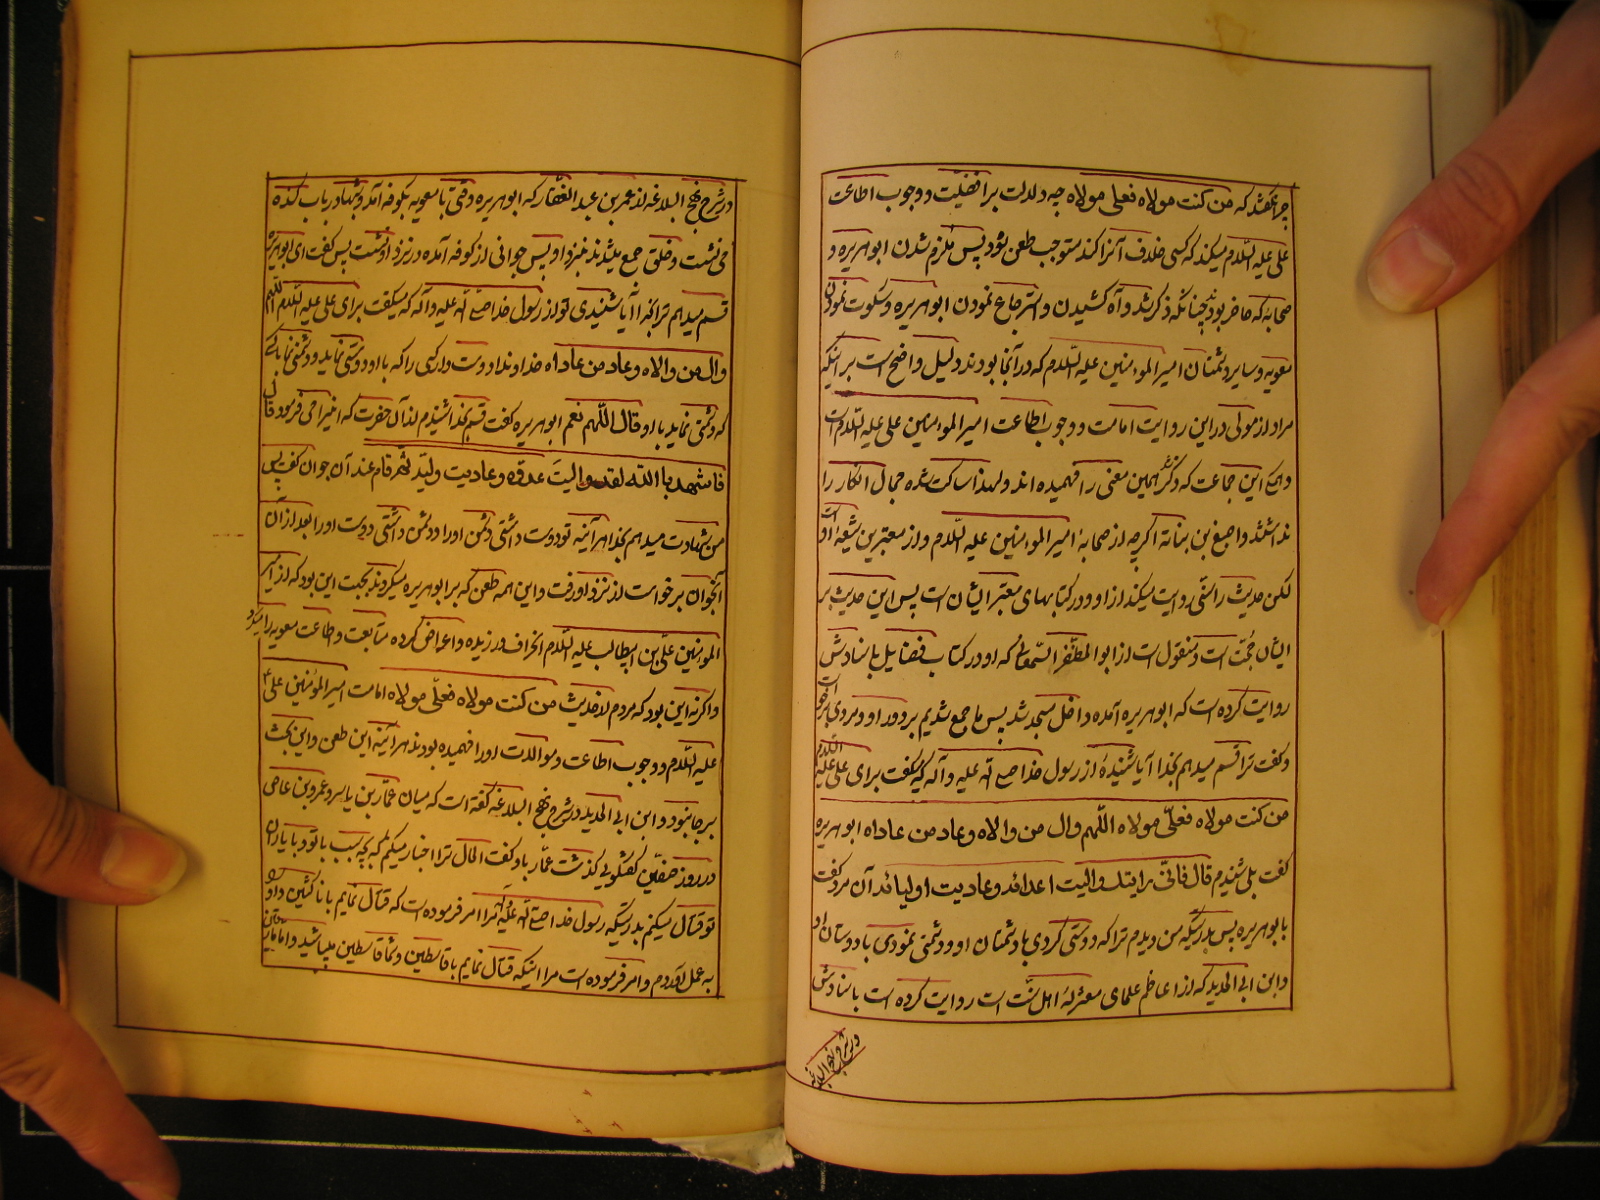 چرا نگفتند که من کنت مولاه فعلی مولاه چه دلالت بر افضلیت و وجوب اطاعت
علی علیه السلام میکند که کسی خلاف آنرا کند مستوجب طعن بود پس ملزم شدن ابو هریره و
صحابه که حاضر بودند چنانکه ذکر شد و آه کشیدن و استرجاع نمودن ابو هریره و سکوت نمودن
معویه و سایر دشمنان امیر المومنین علیه السلام که در آنجا بودند دلیل واضح است بر اینکه
مراد از مولی در این روایت امامت و وجوب اطاعت امیر المومنین علی علیه السلام است
و این جماعت که ذکر شد همین معنی را فهمیده اند و لهذا ساکت شده مجال انکار را
نداشتند و اصبغ بن نباته اگرچه از صحابهٔ امیر المومنین علیه السلام و از معتبرین شیعهٔ او است
لکن حدیث را سنی روایت میکند از او و در کتابهای معتبر ایشان است پس این حدیث بر
ایشان حجت است و منقول است از ابو المظفر السمعانی که او در کتاب فضایل باسنادش
روایت کرده است که ابو هریره آمده داخل مسجد شد پس ما جمع شدیم بر دور او و مردی برخواست
و گفت ترا قسم میدهم بخدا آیا شنیدهٔ از رسول خدا صلی الله علیه و آله که میگفت برای علی علیه السلام
من کنت مولاه فعلی مولاه اللهم وال من والاه و عاد من عاداه ابو هریره
گفت بلی شنیدم قال فانی رایتک والیت اعدائه و عادیت اولیائه آن مرد گفت
با بو هریره پس بدرستیکه من دیدم ترا که دوستی کردی با دشمنان او و دشمنی نمودی با دوستان او
و ابن ابی الحدید که از اعاظم علمای معتزلهٔ اهل سنت است روایت کرده است باسنادش
در شرح نهج البلاغه
در شرح نهج البلاغه از عمر بن عبد الغفار که ابو هریره وقتی با معویه بکوفه آمد و شبها در باب کنده
می نشست و خلق جمع میشدند بنزد او پس جوانی از کوفه آمده در نزد او نشست پس گفت ای ابو هریره
قسم میدهم ترا بخدا آیا شنیدی تو از رسول خدا صلی الله علیه و آله که میگفت برای علی علیه السلام اللهم
وال من والاه و عاد من عاداه خداوندا دوست دار کسی را که با او دوستی نماید و دشمنی نما با کسی
که دشمنی نماید با او قال اللهم نعم ابو هریره گفت قسم بخدا شنیدم از آن حضرت که اینرا می فرمود قال
فاشهد بالله لقد والیت عدوه و عادیت ولیه ثم قام عنه آن جوان گفت پس
من شهادت میدهم بخدا هر آینه تو دوست داشتی دشمن او را و دشمن داشتی دوست او را بعد از آن
آنجوان برخواست از نزد او رفت و این همه طعن که بر ابو هریره میکردند بجهت این بود که از امیر
المومنین علی بن ابیطالب علیه السلام انحراف ورزیده و اعراض کرده متابعت و اطاعت معویه را میکرد
و اگر نه این بود که مردم از حدیث من کنت مولاه فعلی مولاه امامت امیر المومنین علی
علیه السلام و وجوب اطاعت و موالات او را فهمیده بودند هر آینه این طعن و این بحث
بیجا نبود و ابن ابی الحدید در شرح نهج البلاغه گفته است که میان عمار بن یاسر و عمرو بن عاص
در روز صفین گفتگویی گذشت عمار باو گفت الحال ترا اخبار میکنم که بچه سبب با تو و با یاران
تو قتال میکنم بدرستیکه رسول خدا صلی الله علیه و آله مرا امر فرموده است که قتال نمایم با ناکثین و او را
به عمل آوردم و امر فرموده است مرا اینکه قتال نمایم با قاسطین و شما قاسطین میباشید و اما مارقین